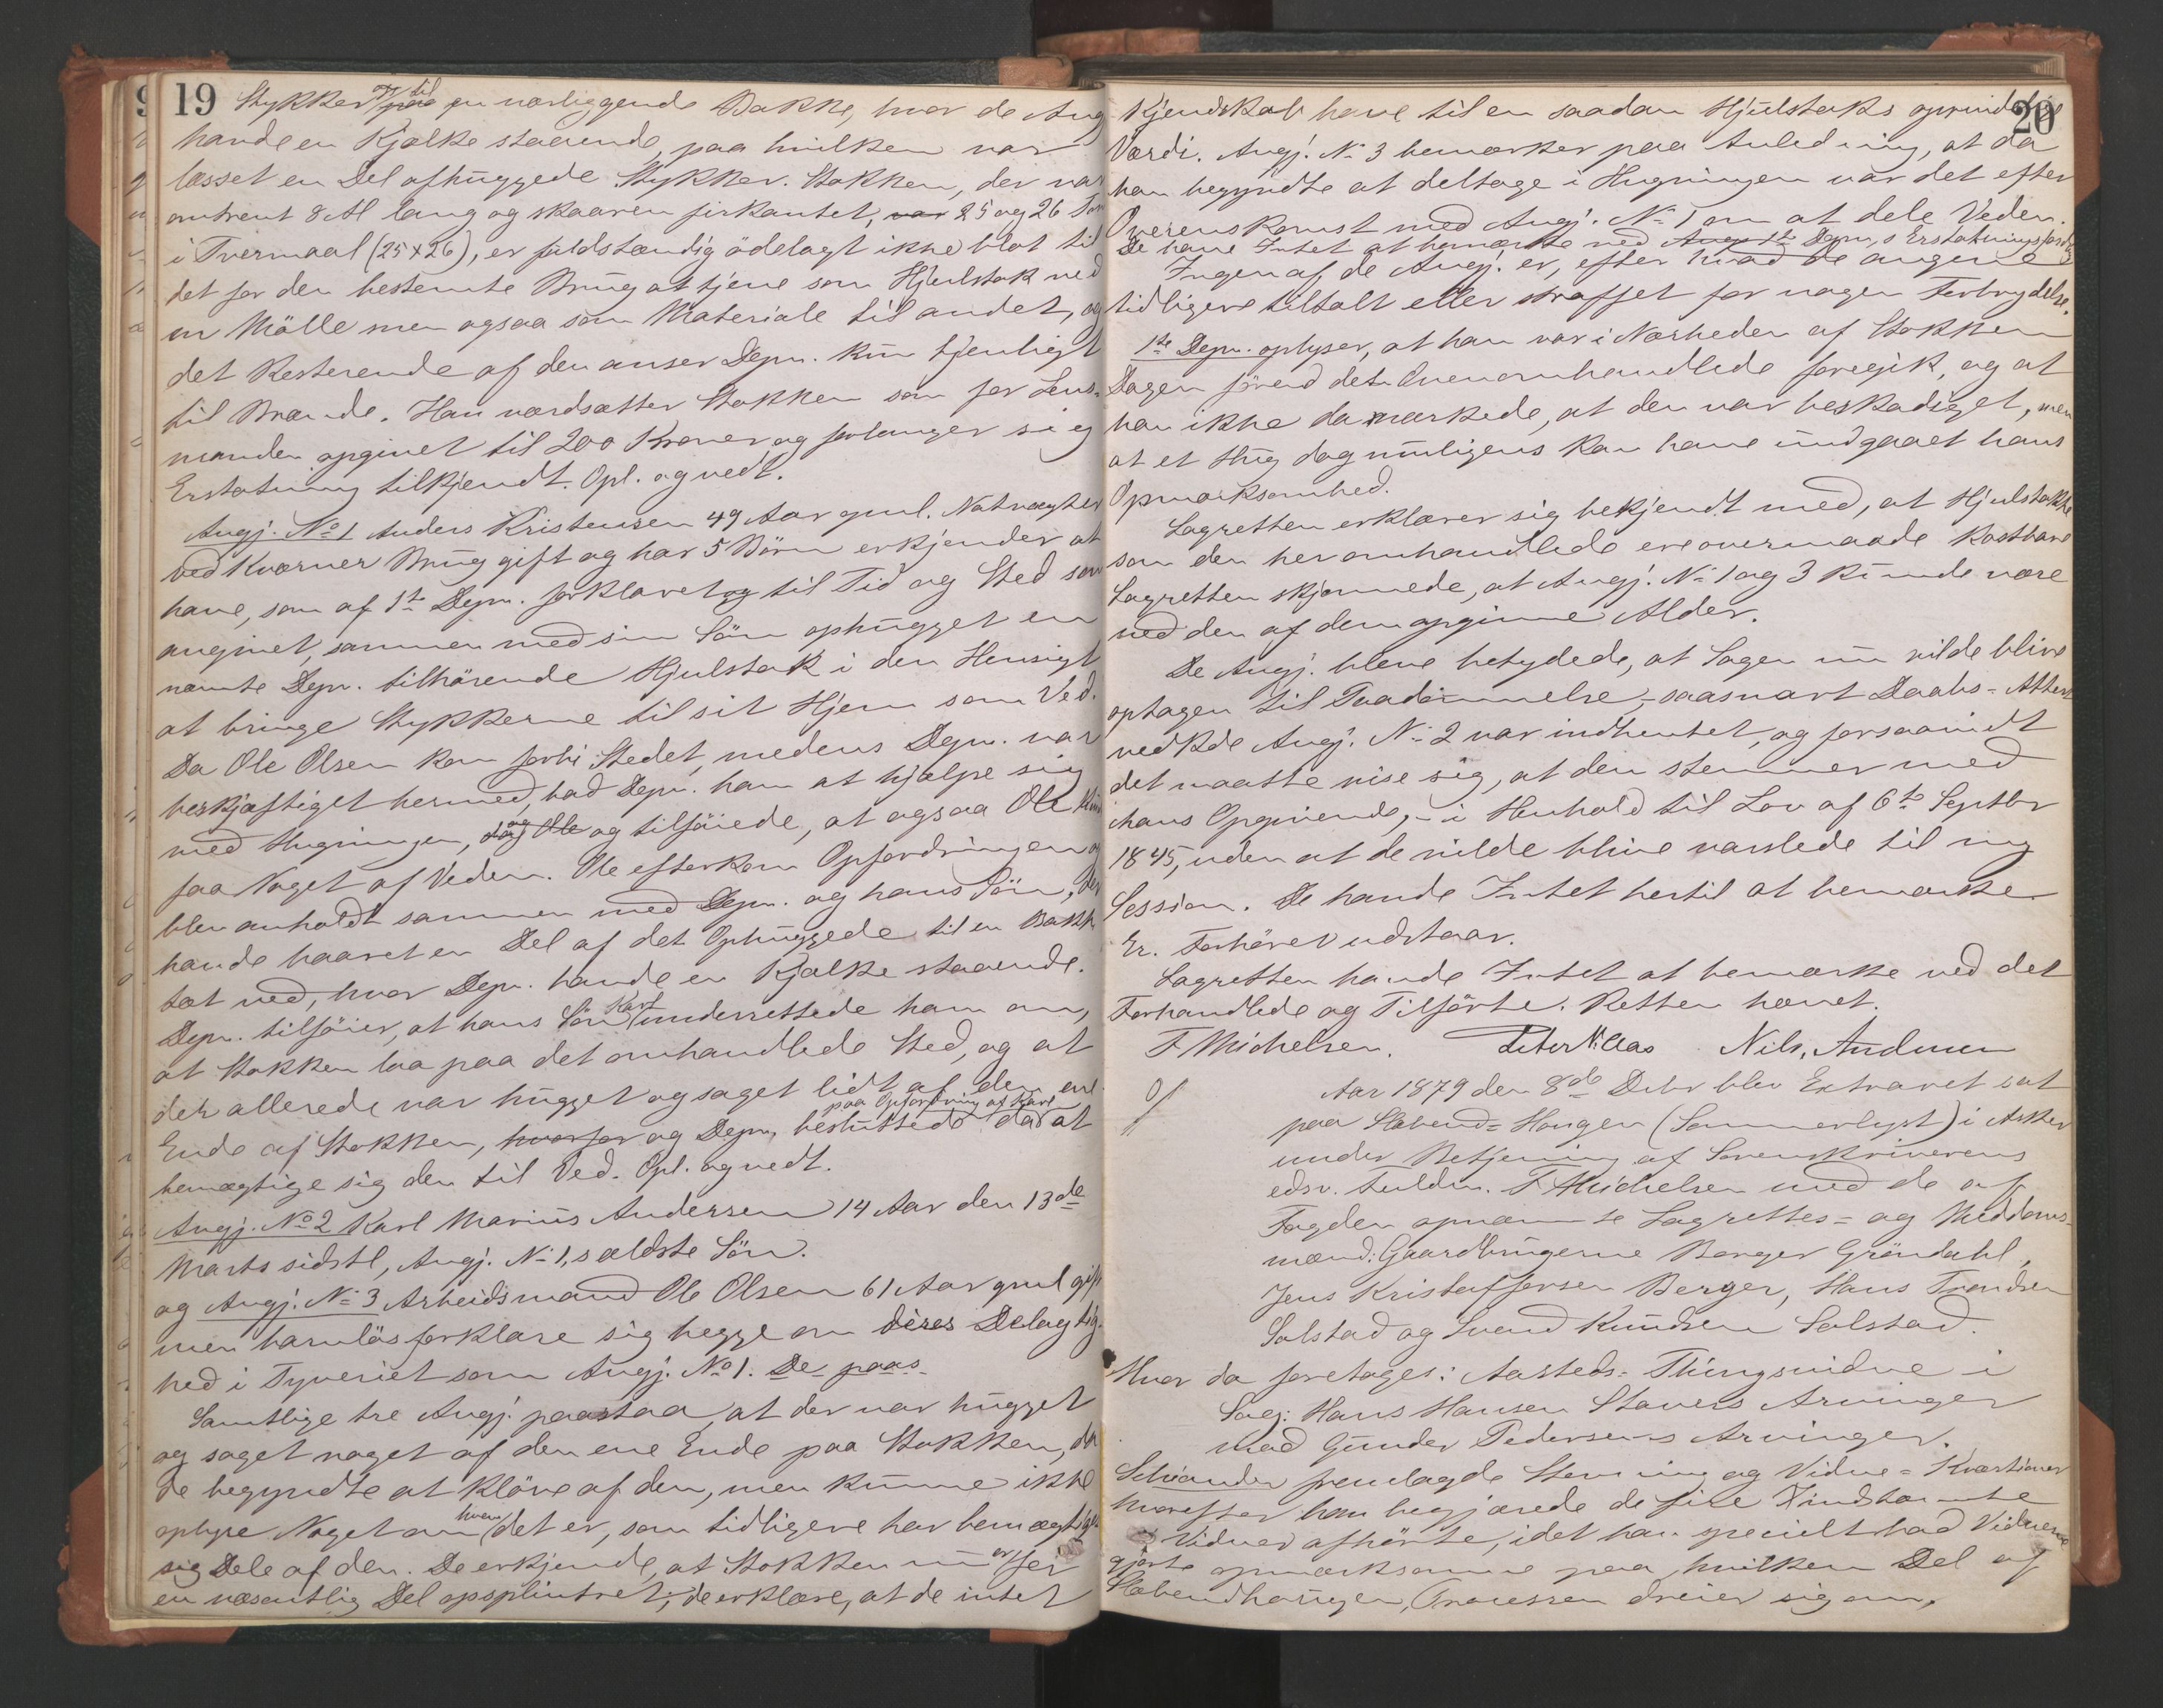 19
Stykker af til en nærliggende Bakke, hvor de Ang
havde en Kjælke staaende, paa hvilken var
læsset en Del afhuggede Stykker. Stokken, der var
omtrent 8 Al lang og skaaren firkantet, var 25 og 26 Tom
i Tvermaal (25 x 26), er fuldstændig ödelagt ikke blot til
det for den bestemte Brug at tjene som Hjulstok ved
en Mölle men ogsaa som Materiale til andet, og
det Resterende af den anser Depn. kun tjenligt
til Brænde. Han værdsætter Stokken som for Lens-
manden opgivet til 200 Kroner og forlanger sig
Erstatning tilkjendt. Opl. og vedt.
Angj. No 1 Anders Kristensen 49 Aar gml. Natvægter
ved Kværner Brug gift og har 5 Börn erkjender at
have, som af 1ste Depn. forklaret og til Tid og Sted som
angivet, sammen med sin Sön ophugget en
nævnte Depn. tilhörende Hjulstok i den Hensigt
at bringe Stykkerne til sit Hjem som Ved.
Da Ole Olsen kom forbi Stedet, medens Depn. var
beskjæftiget hermed, bad Depn. ham at hjælpe sig
med Hugningen, og Ole og tilföiede, at ogsaa Ole kun
faa Noget af Veden. Ole efterkom Opfordringen og
blev anholdt sammen med Depn. og hans Sön, der
havde baaret en Del af det Ophuggede til en Bakke
tæt ved, hvor Depn. havde en Kjælke staaende.
Depn. tilföier, at hans Sön Karl underrettede ham om,
at Stokken laa paa det omhandlede Sted, og at
der allerede var hugget og saget lidt af den ene
Ende af Stokken, hvorfor og Depn. besluttede paa Opfordring af Karl da at
bemægtige sig den til Ved. Opl. og vedt.
Angj. No 2 Karl Marius Andersen 14 Aar den 13de
Marts sidstl, Angj. No 1,s ældste Sön.
og Angj. No 3 Arbeidsmand Ole Olsen 61 Aar gml gift
men barnlös forklare sig begge om deres Delagtig-
hed i Tyveriet som Angj. No 1. De paas
Samtlige tre Angj. paastaa, at der var hugget
og saget noget af den ene Ende paa Stokken, da
de begyndte at klöve af den, men kunne ikke
oplyse Noget om hvem det er, som tidligere har bemægtiget
sig Dele af den. De erkjende, at Stokken nu er for
en væsentlig Del opsplintret; de erklære, at de intet
20
Kjendskab have til en saadan Hjulstoks oprindelige
Værdi. Angj. No 3 bemærker paa Anledning, at da
han begyndte at deltage i Hugningen var det efter
Overenskomst med Angj. No 1 om at dele Veden.
De have Intet at bemærke ved Angj 1ste Depn,s Erstatningsfordring
Ingen af de Angj. er, efter hvad de angive
tidligere tiltalt eller straffet for nogen Forbrydelse.
1ste Depn. oplyser, at han var i Nærheden af Stokken
Dagen förend det Ovenomhandlede foregik, og at
han ikke da mærkede, at den var beskadiget, men
at et Hug dog muligens kan have undgaaet hans
Opmærksomhed.
Lagretten erklærer sig bekjendt med, at Hjulstokke
som den heromhandlede ere overmaade kostbare
Lagretten skjönnede, at Angj. No 1 og 3 kunde være
ved den af dem opgivne Alder.
De Angj. bleve betydede, at Sagen nu vilde blive
optagen til Paadömmelse, saasnart Daabs-Attest
vedkde Angj. No 2 var indhentet, og forsaavidt
det maatte vise sig, at den stemmer med
hans Opgivende, i Henhold til Lov af 6te Septbr
1845, uden at de vilde blive varslede til ny
Session. De havde Intet hertil at bemærke
Er. Forhöret udstaar.
Lagretten havde Intet at bemærke ved det
Forhandlede og Tilförte. Retten hævet.
F Michelsen. Nils, Andersen
Aar 1879 den 8de Debr blev Extraret sat
paa Slabend-Hougen (Sommerlyst) i Asker
under Betjening af Sorenskriverens
edsv. Fuldm. F Michelsen med de af
Fogden opnævnte Lagrettes- og Meddoms-
mænd: Gaardbrugerne Berger Gröndahl,
Jens Kristoffersen Berger, Hans Trondsen
Solstad og Svend Knudsen Solstad.
Hvor da foretages: Aasteds-Thingsvidne i
Sag: Hans Hansen Stavers Arvinger
mod Gunder Pedersens Arvinger.
Schiander fremlagde Stevning og Vidne-Kvæstioner
hvorefter han begjærede de fire Indstævnte
Vidner afhörte, idet han specielt bad Vidnerne
gjorte opmærksomme paa, hvilken Del af
Slabendhougen, Processen dreier sig om,